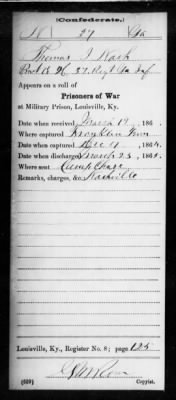 (Confederate.)
N 27 Ga
Thomas J Nash
Pvt Co H, 27 Regt Ga Inf
Appears on a roll of
Prisoners of War
at Military Prison, Louisville, Ky.
Date when received, March 19, 186
Where captured Franklin Tenn
Date when captured, Dec 17, 1864.
Date when discharged March 23, 1865.
Where sent Camp Chase
Remarks, charges, &c. Nashville
Louisville, Ky., Register No. 8; page 125
(639) Copyist.